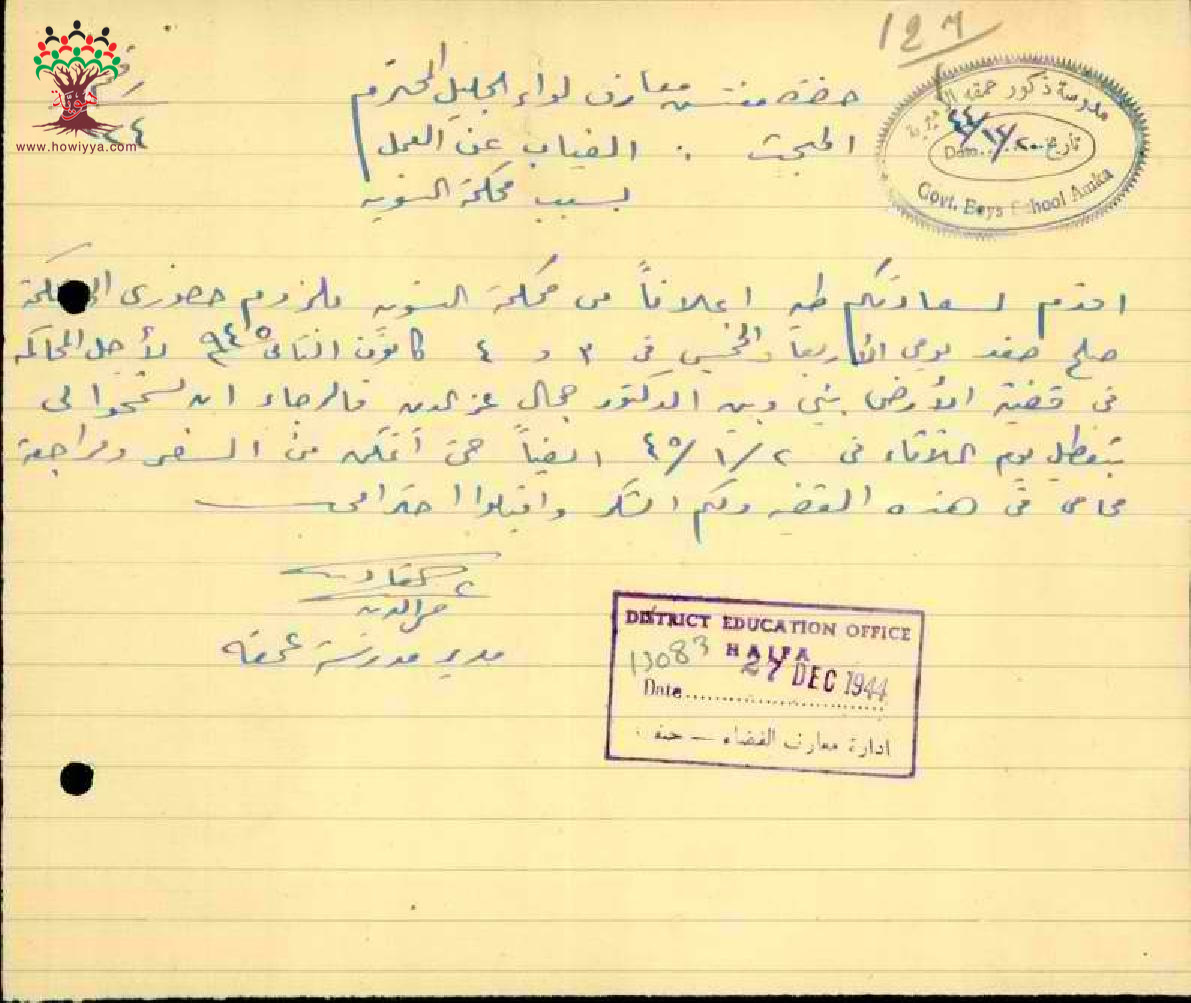 127
رقم
٤٤
هوية
www.howiyya.com
حضرة مفتش معارف لواء الجليل المحترم
المبحث : الغياب عن العمل
بسبب محكمة التسوية
مدرسة ذكور عمقه الاميرية
تاريخ ٢٠/١٢/٤٤ Date
Govt. Boys School Amka
اقدم لسعادتكم طيه اعلاناً من محكمة التسويه بلزوم حضورى الى محكمة
صلح صفد يومي الأربعا والخميس فى ٣ و ٤ كانون الثانى ٩٤٥ لأجل المحاكمه
فى قضية الأرض بيني وبين الدكتور جمال عز الدين فالرجاء ان تسمحوا لى
بتعطيل يوم الثلاثاء فى ٢/١/٤٥ ايضاً حتى أتمكن من السفر ومراجعة
محامى فى هذه القضيه ولكم الشكر واقبلوا احترامى
عز الدين
مدير مدرسة عمقه
DISTRICT EDUCATION OFFICE
HAIFA
13083
27 DEC 1944
Date
ادارة معارف القضاء — حيفا